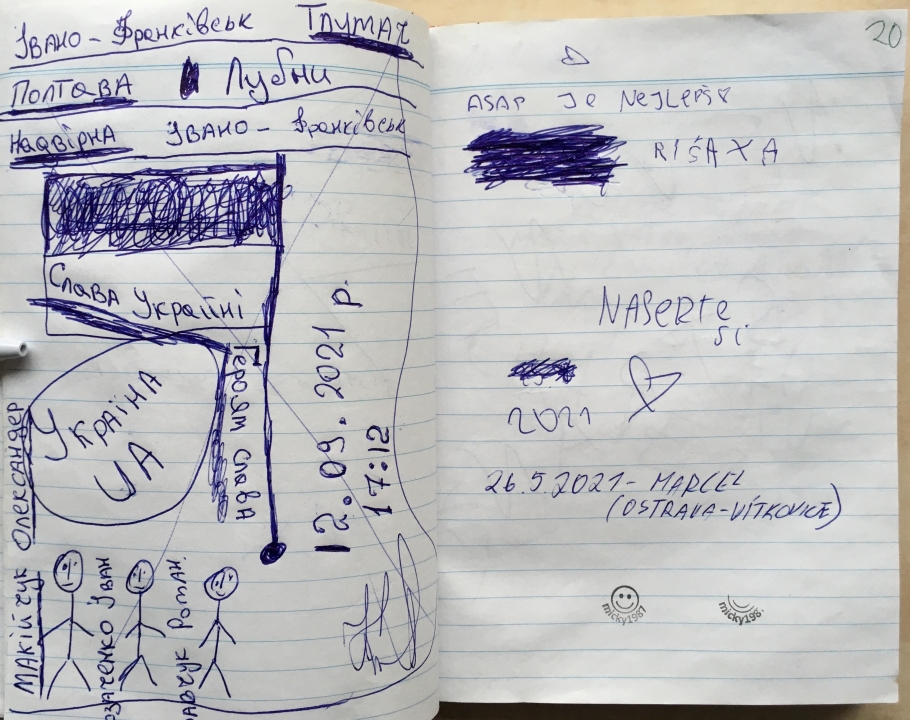 Івано-Франківськ Тлумач
Полтава Лубни
Надвірна Івано-Франківськ
Слава Україні
Героям Слава
Україна
UA
12.09.2021 р.
17:12
Макійчук Олександер
Іван
Роман.
20
ASAP JE NEJLEPŠÍ
RIŠAXA
NASERTE
SI
2021
26.5.2021 - MARCEL
(OSTRAVA-VÍTKOVICE)
micky1981
micky198